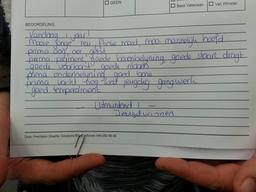 GEEN
Best Veteraan
Vet. Winner
BEOORDELING:
Vandaag 1 jaar!
Mooie jonge reu, fraaie maat, mooi mannelijk hoofd
prima oog, oor gebit
prima pigment, goede bovenbelijning, goede staart dracht
goede voorborst, goede hoeken
prima onderbelijning, goed bone
prima vacht, nog wat jeugdig gangwerk
goed temperament
Uitmuntend 1
Jeugdwinnaar